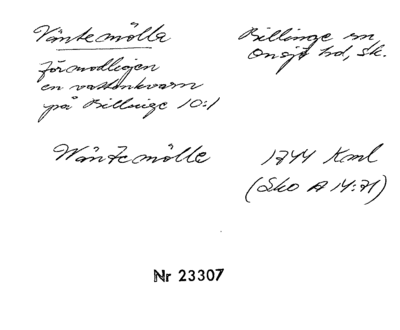 Väntemölla
Billinge sn
Onsjö hd, Sk.
förmodligen
en vattenkvarn
på Billinge 10:1
Wäntemölle
1744 Kml
(Sko A 14:71)
Nr 23307